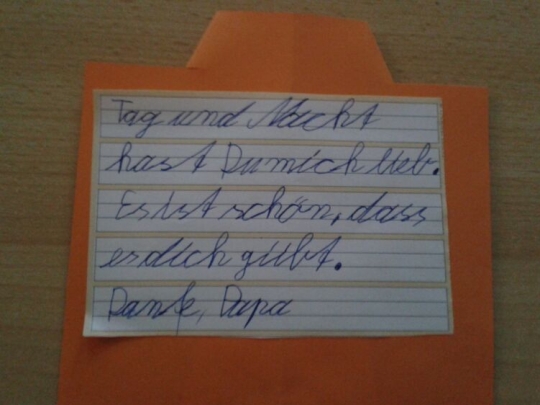 Tag und Nacht
hast Du mich lieb.
Es ist schön, dass
es dich giebt.
Danke, Papa